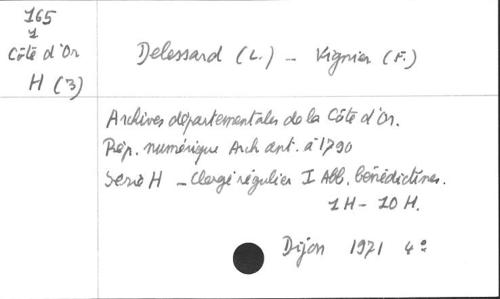 165
1
Côte d'Or
H (3)
Delessard (L.) - Vignier (F.)
Archives départementales de la Côte d'Or.
Rép. numérique Arch ant. à 1790
Serie H - Clergé régulier I Abb. bénédictines.
1H - 10 H.
Dijon 1971 4°